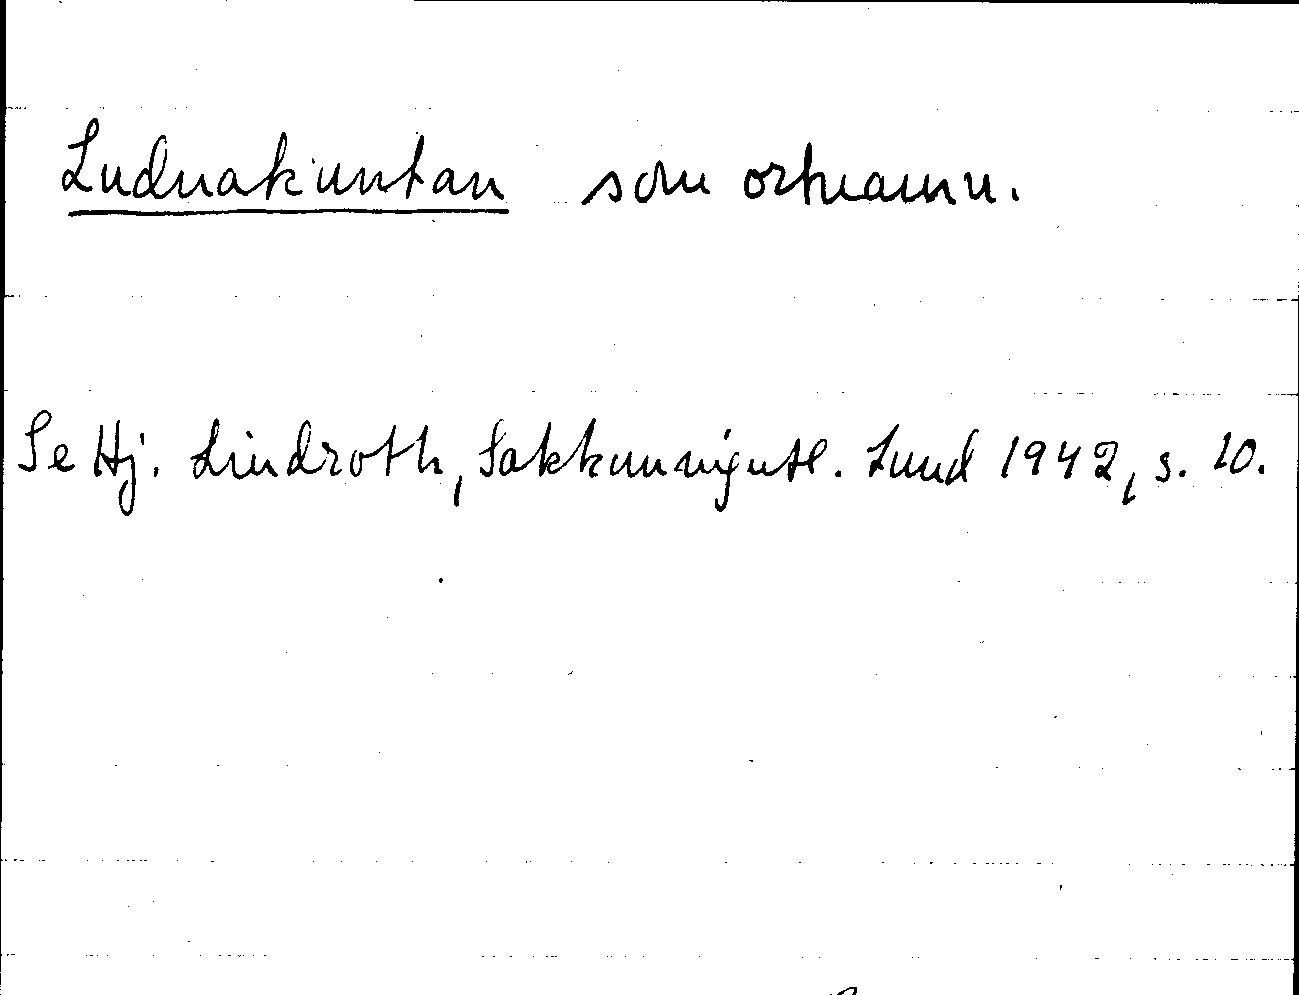 Ludnakuntan som ortnamn.
Se Hj. Lindroth, Sakkunnigutl. Lund 1942, s. 10.